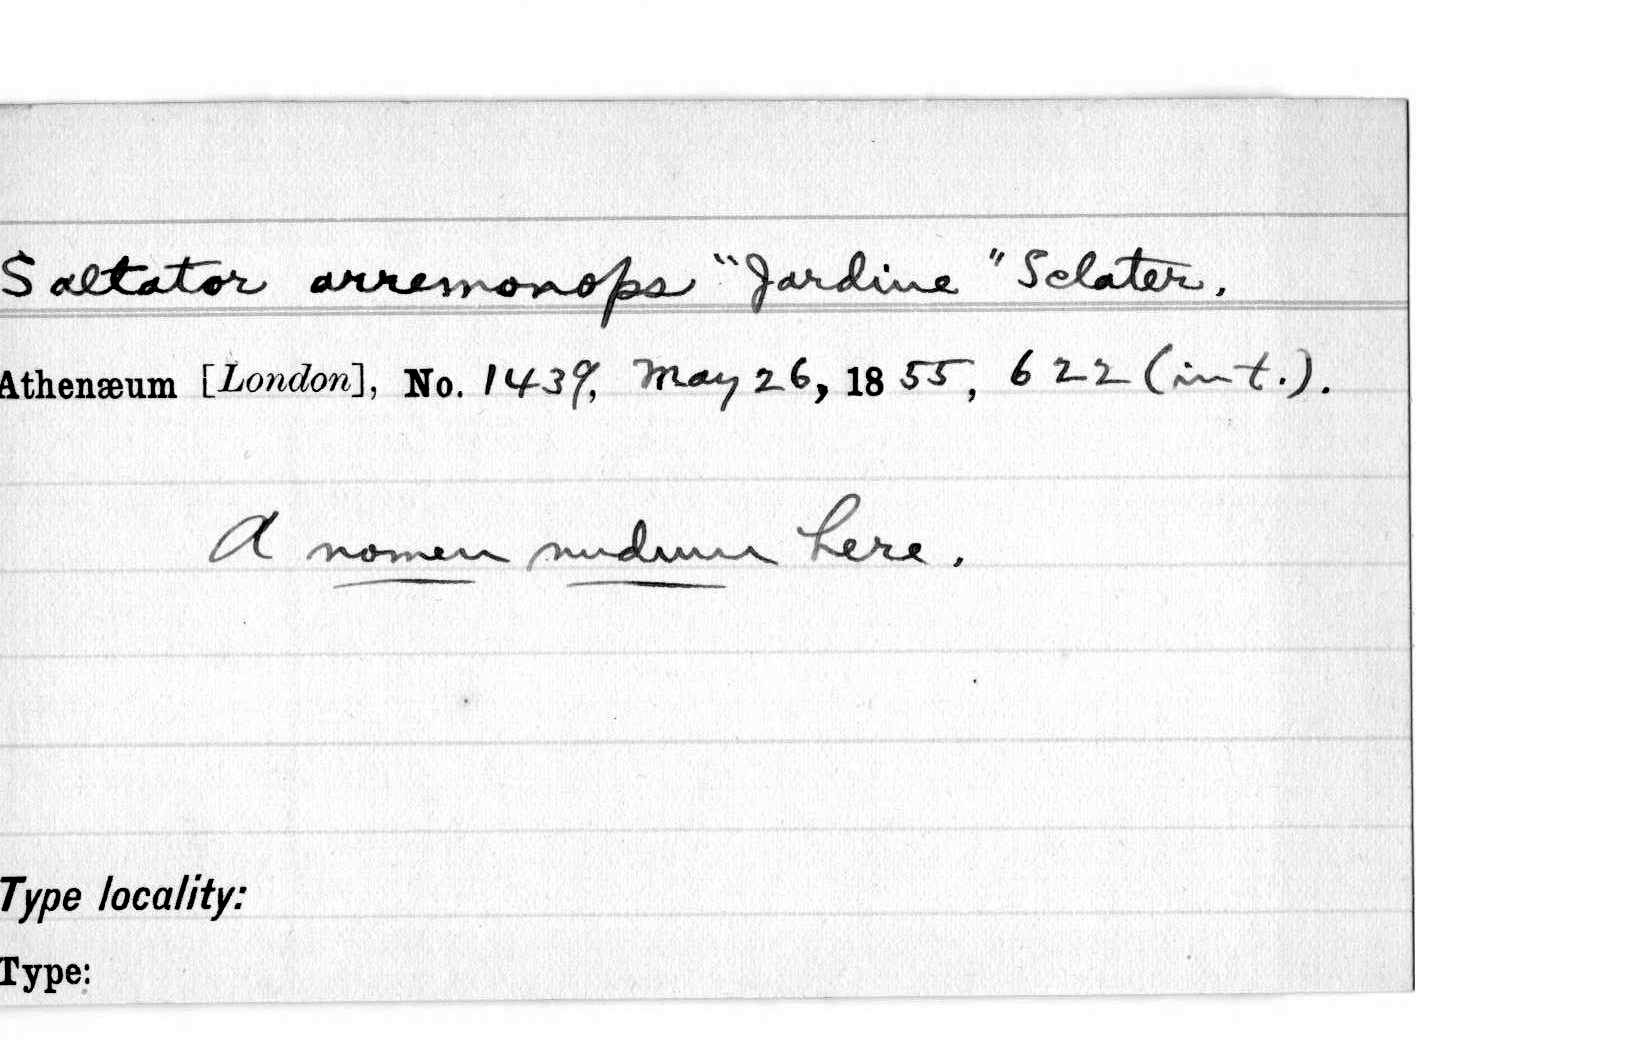 Saltator arremonops "Jardine" Sclater,
Athenæum [London], No. 1439, May 26, 1855, 622 (int.).
A nomen nudum here.
Type locality:
Type: